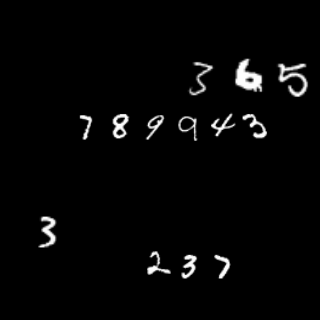 365
789943
3
237